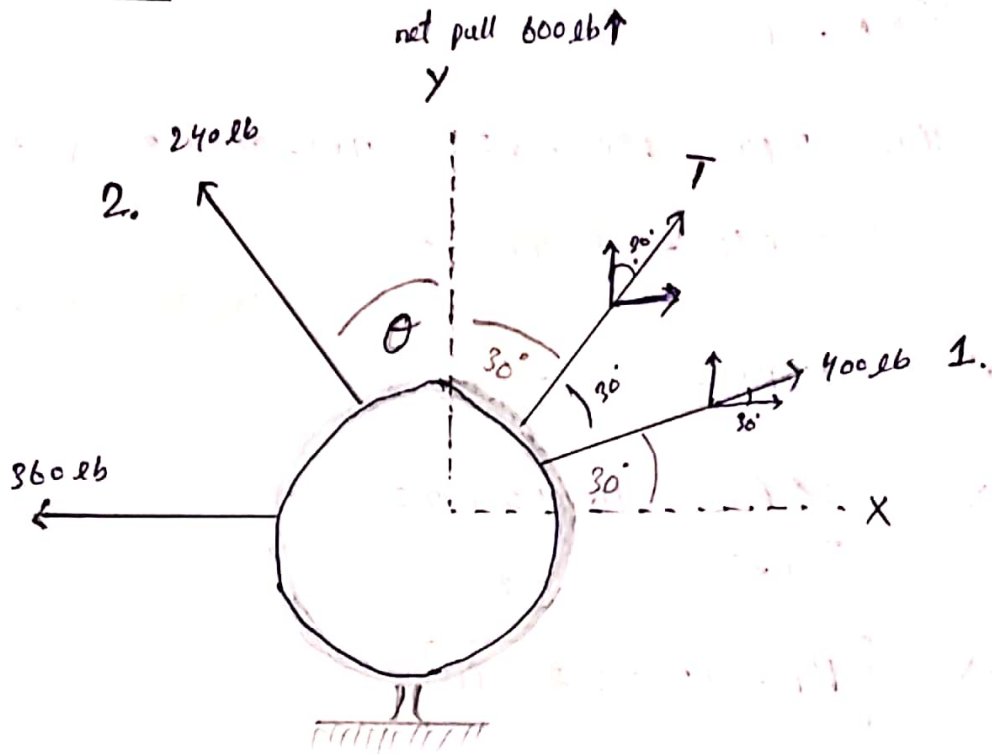 net pull 600lb↑
Y
240lb
2.
T
30°
θ
30°
30°
400lb 1.
30°
360lb
30°
X